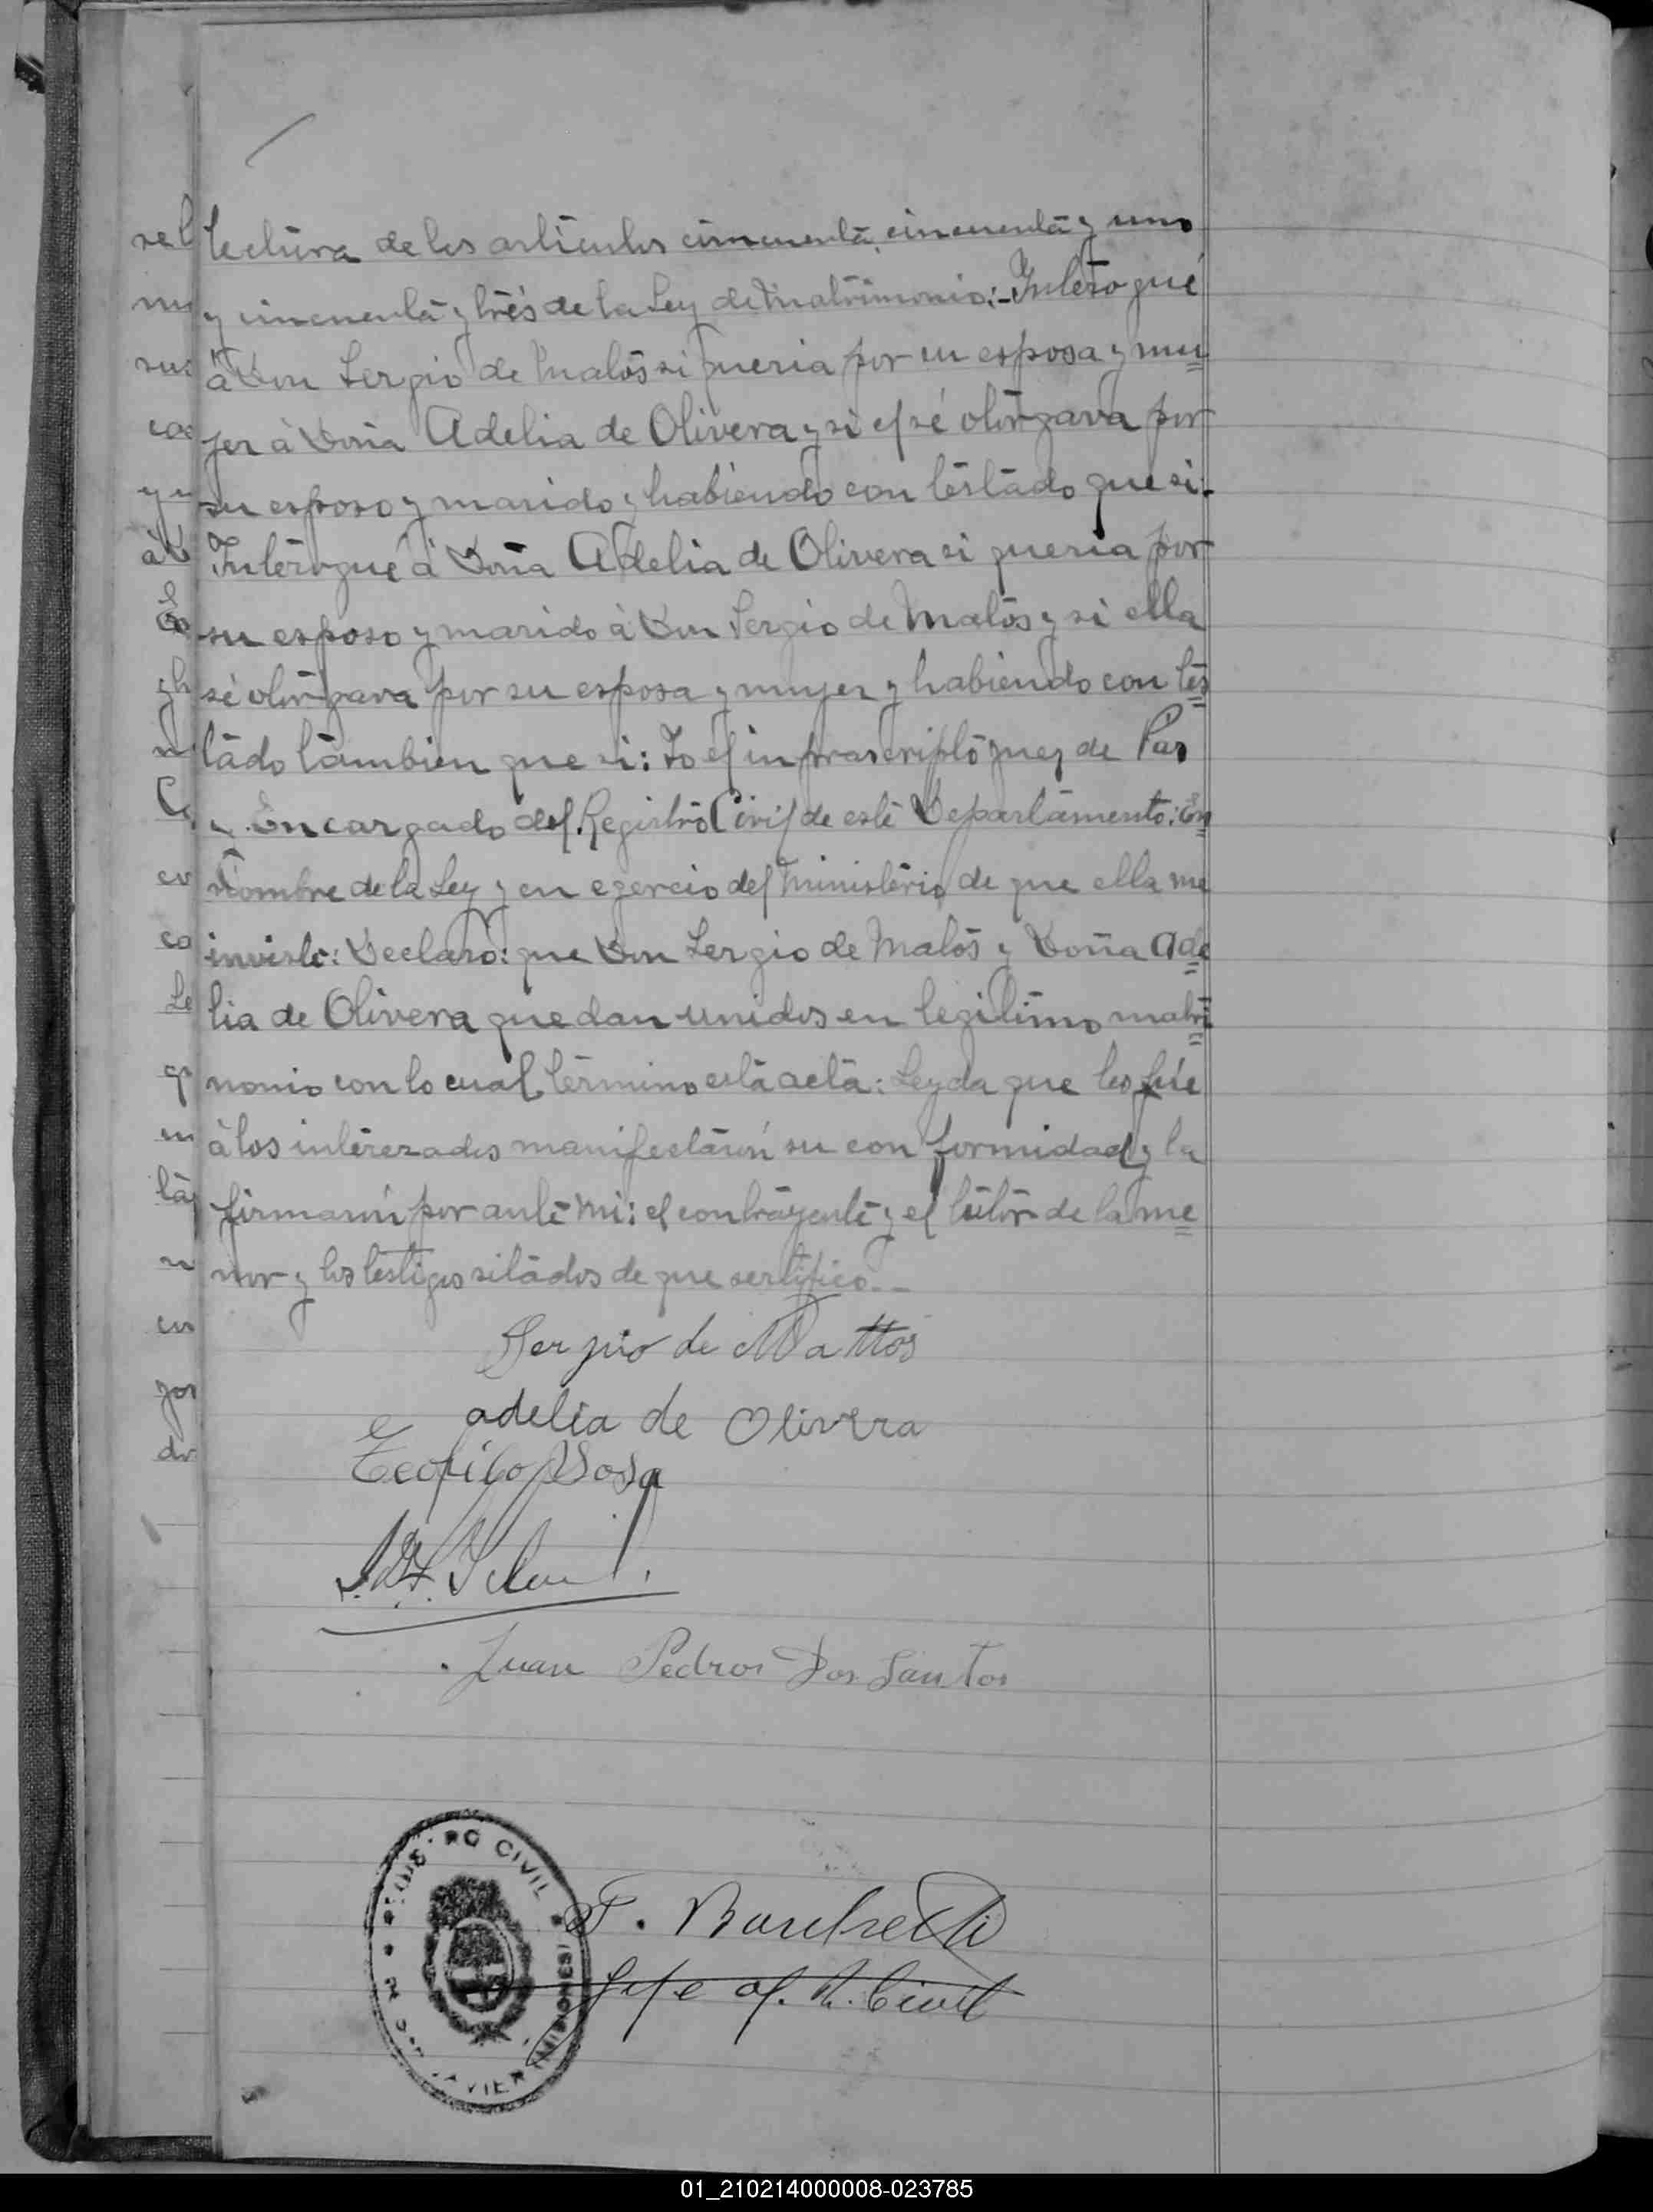 lectura de los articulos cincuenta, cincuenta y uno
y cincuenta y trés de la Ley de Matrimonio:- Interogué
á Don Sergio de Matos si queria por su esposa y mu
jer á Doña Adelia de Olivera y si el sé otorgava por
su esposo y marido y habiendo contestado que si.
Interogué á Doña Adelia de Olivera si queria por
su esposo y marido á Don Sergio de Matos y si ella
sé otorgava por su esposa y mujer y habiendo contes
tado tambien que si: Yo el infrascripto Juez de Pas
y Encargado del Registro Civil de este Departamento: En
Nombre de la Ley y en egercio del Ministerio de que ella me
inviste: Declaro: que Don Sergio de Matos y Doña Ade
lia de Olivera quedan unidos en legitimo matri
monio con lo cual termino esta acta: Leyda que les fué
á los interezados manifestaron su conformidad y la
firmaron por ante mi: el contrayente y el tutor de la me
nor y los testigos sitados de que sertifico.--
Sergio de Mattos
adelia de Olivera
Teofilo Sosa
Juan Pedros Dos Santos
CIVIL
MISIONES
Jefe of. R. Civil
01_210214000008-023785